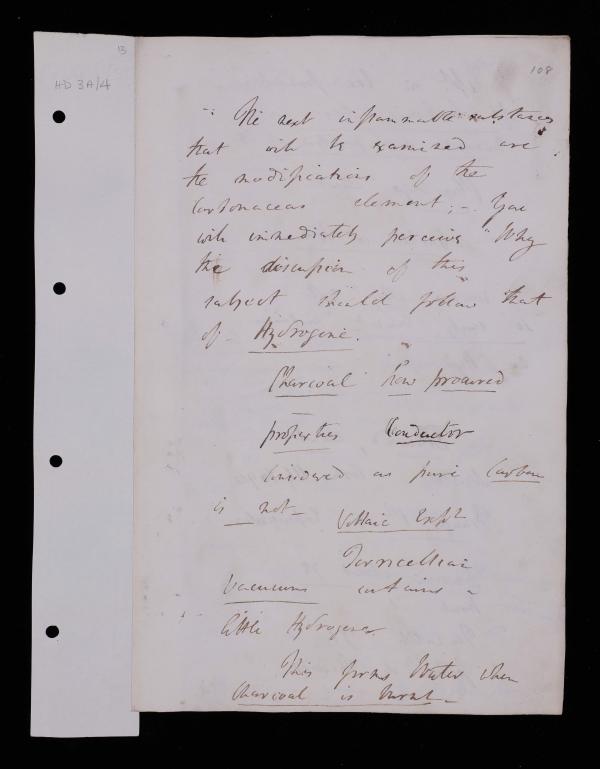 13
HD 3A/4
108
The next inflammable substances
that will be examined are
the modifications of the
Carbonaceous element; – You
will immediately perceive Why
the discussion of this
subject should follow that
of Hydrogene.
Charcoal how procured
properties Conductor
Considered as pure Carbon
is not –
Voltaic Expt
Torricellian
Vacuum contains a
little Hydrogene
This forms Water when
Charcoal is burnt –